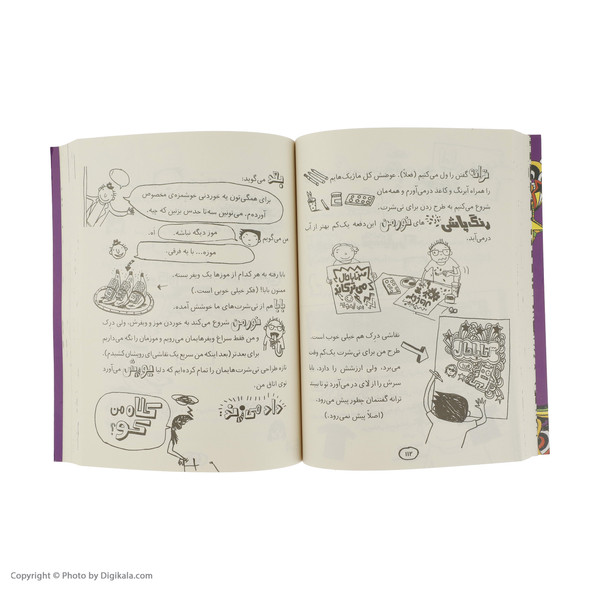 ترانه گفتن را ول می‌کنیم (فعلاً). عوضش کل ماژیک‌هایم
را همراه آبرنگ و کاغذ درمی‌آورم و همه‌مان
شروع می‌کنیم به طرح زدن برای تی‌شرت.
رنگ‌پاشی های نورمن این‌دفعه یک‌کم بهتر از آب
درمی‌آید.
نقاشی دِرِک هم خیلی خوب است.
طرح من برای تی‌شرت یک‌کم وقت
می‌برد، ولی ارزشش را دارد. بابا
سرش را از لای در می‌آورد تو تا ببیند
ترانه گفتنمان چطور پیش می‌رود.
(اصلاً پیش نمی‌رود.)
۱۱۲
بعد می‌گوید:
برای همگی‌تون یه خوردنی خوشمزه‌ی مخصوص
آورده‌م. می‌تونین سه‌تا حدس بزنین که چیه.
من می‌گویم
موز دیگه نباشه.
اه.
موزه... با یه فرقی.
بابا رفته به هر کدام از موزها یک ویفر بسته.
ممنون بابا! (فکر خیلی خوبی است.)
بابا هم از تی‌شرت‌های ما خوشش آمده.
نورمن شروع می‌کند به خوردن موز و ویفرش، ولی درک
و من فقط سراغ ویفرهایمان می‌رویم و موزمان را نگه می‌داریم
برای بعدتر (بعد اینکه من سریع یک نقاشی‌ای رویشان کشیدم).
تازه طراحی تی‌شرت‌هایمان را تمام کرده‌ایم که دلیا یورش می‌آورد
توی اتاق من.
داد می‌زند
کلاه من کو؟
Copyright © Photo by Digikala.com